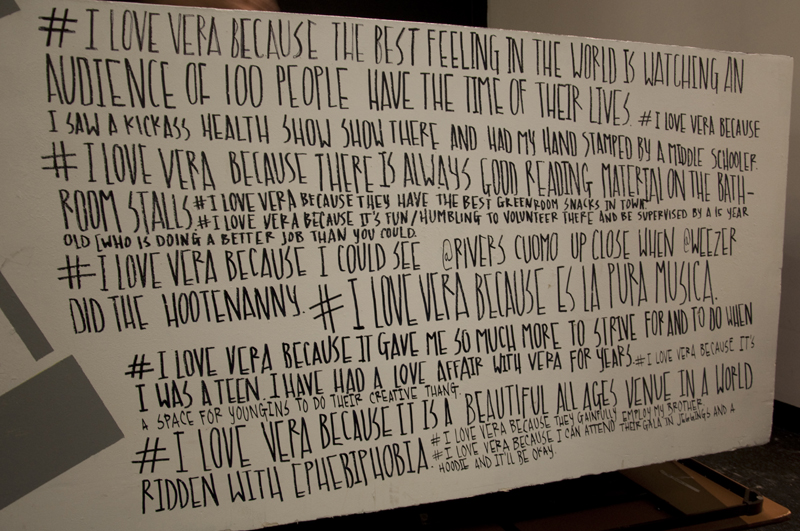 # I LOVE VERA BECAUSE THE BEST FEELING IN THE WORLD IS WATCHING AN
AUDIENCE OF 100 PEOPLE HAVE THE TIME OF THEIR LIVES. # I LOVE VERA BECAUSE
I SAW A KICKASS HEALTH SHOW SHOW THERE AND HAD MY HAND STAMPED BY A MIDDLE SCHOOLER.
# I LOVE VERA BECAUSE THERE IS ALWAYS GOOD READING MATERIAL ON THE BATH-
ROOM STALLS. # I LOVE VERA BECAUSE THEY HAVE THE BEST GREENROOM SNACKS IN TOWN
# I LOVE VERA BECAUSE IT'S FUN/HUMBLING TO VOLUNTEER THERE AND BE SUPERVISED BY A 15 YEAR
OLD [WHO IS DOING A BETTER JOB THAN YOU COULD.
# I LOVE VERA BECAUSE I COULD SEE @RIVERS CUOMO UP CLOSE WHEN @WEEZER
DID THE HOOTENANNY. # I LOVE VERA BECAUSE ES LA PURA MUSICA.
# I LOVE VERA BECAUSE IT GAVE ME SO MUCH MORE TO STRIVE FOR AND TO DO WHEN
I WAS A TEEN. I HAVE HAD A LOVE AFFAIR WITH VERA FOR YEARS. # I LOVE VERA BECAUSE IT'S
A SPACE FOR YOUNGINS TO DO THEIR CREATIVE THANG.
# I LOVE VERA BECAUSE IT IS A BEAUTIFUL ALL AGES VENUE IN A WORLD
RIDDEN WITH EPHEBIPHOBIA. # I LOVE VERA BECAUSE THEY GAINFULLY EMPLOY MY BROTHER
# I LOVE VERA BECAUSE I CAN ATTEND THEIR GALA IN JEGGINGS AND A
HOODIE AND IT'LL BE OKAY.